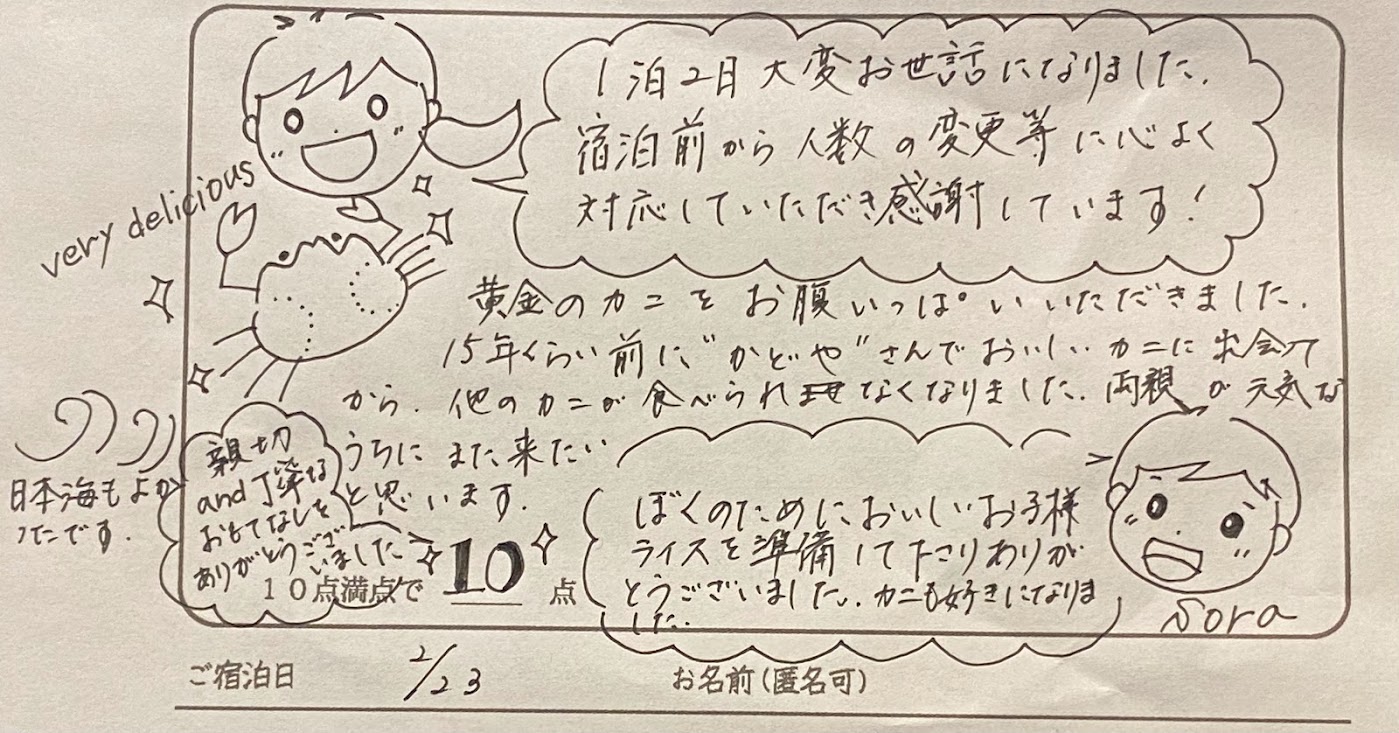 1泊2日大変お世話になりました。
宿泊前から人数の変更等に心よく
対応していただき感謝しています!
very delicious
黄金のカニをお腹いっぱいいただきました。
15年くらい前に"かどや"さんでおいしいカニに出会って
から、他のカニが食べられなくなりました。両親が元気な
うちにまた来たい
と思います。
日本海もよか
ったです。
親切
and丁寧な
おもてなしを
ありがとうござ
いました
10点満点で 10 点
ぼくのためにおいしいお子様
ライスを準備して下さりありが
とうございました。カニも好きになりま
した。
Sora
ご宿泊日 2/23 お名前(匿名可)